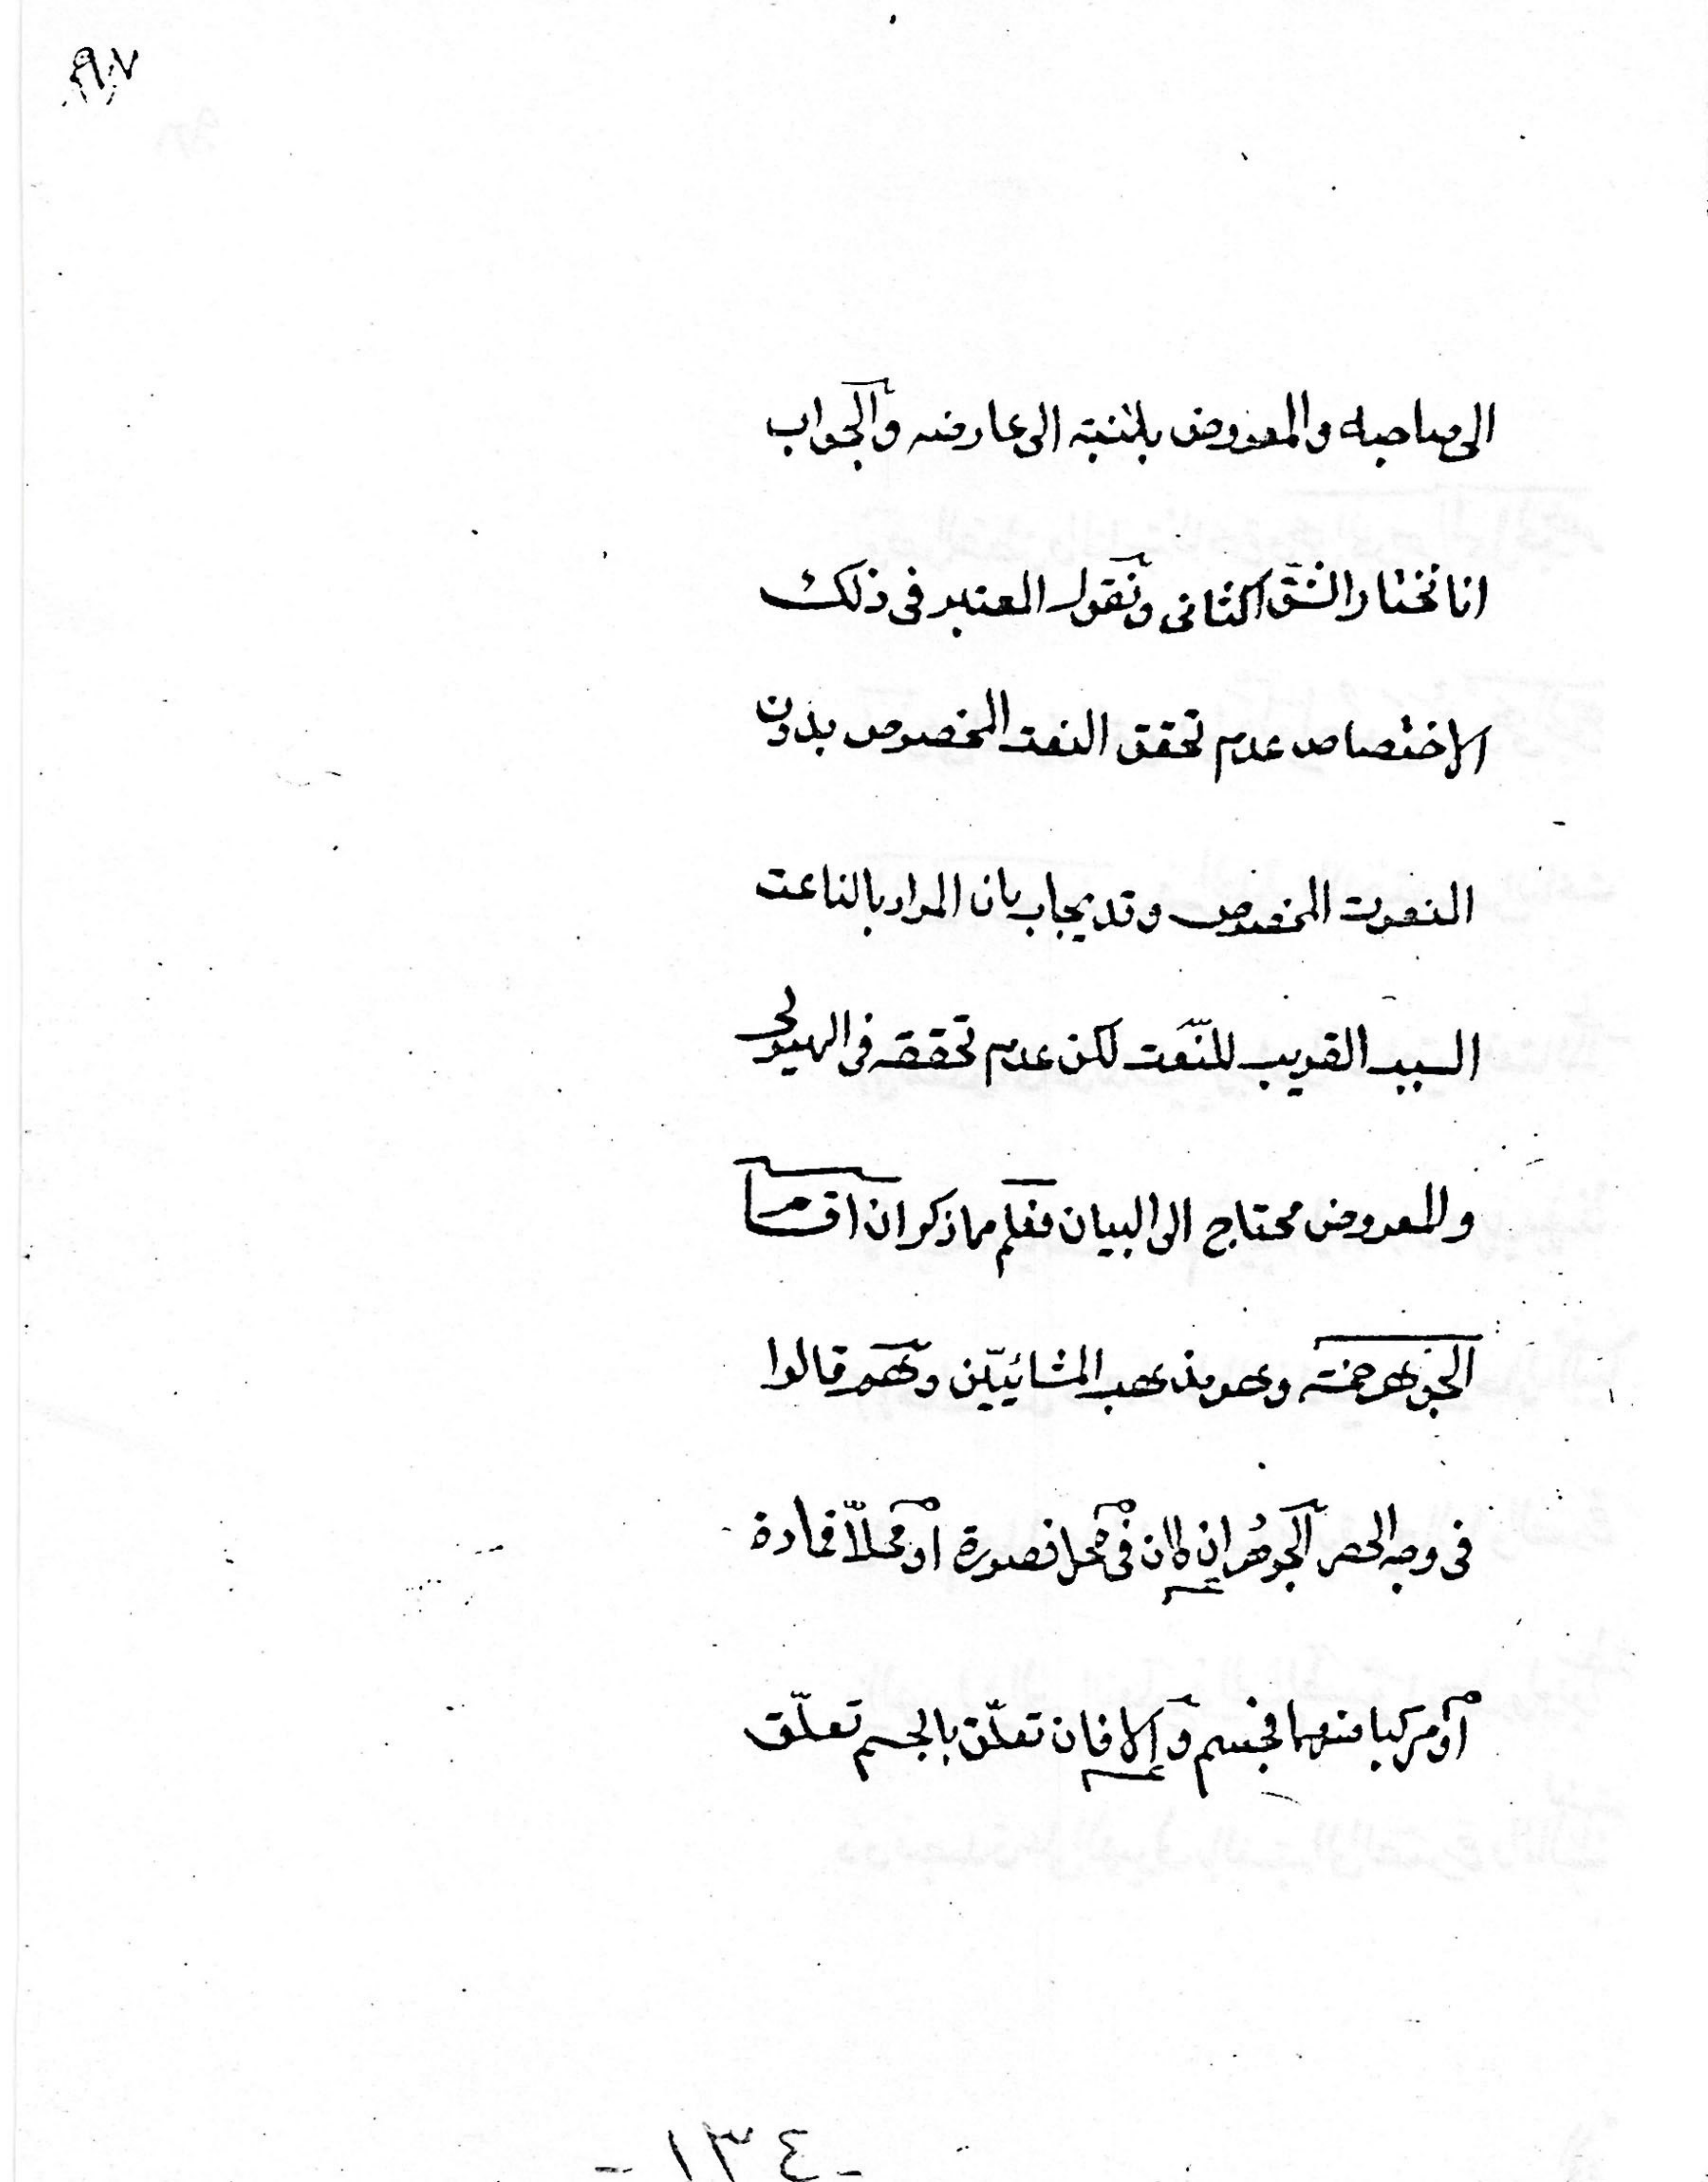 الى صاحبه والمعروض بالنسبة الى عارضه والجواب
انا نختار الشق الثانى ونقول المعتبر فى ذلك
الاختصاص عدم تحقق النعت المخصوص بدون
المنعوت المخصوص وقد يجاب بان المراد بالناعت
السبب القريب للنّعت لكن عدم تحققه فى الهيولى
والمعروض محتاج الى البيان فعلم مما ذكر ان اقسام
الجوهر خمسة وهو مذهب المشائيّين وهم قالوا
فى وجه الحصر الجوهر ان كان فى محل فصورة او محلاّ فمادة
او مركبا منهما فجسم وإلا فان تعلّق بالجسم تعلّق
- ١٣٤ -